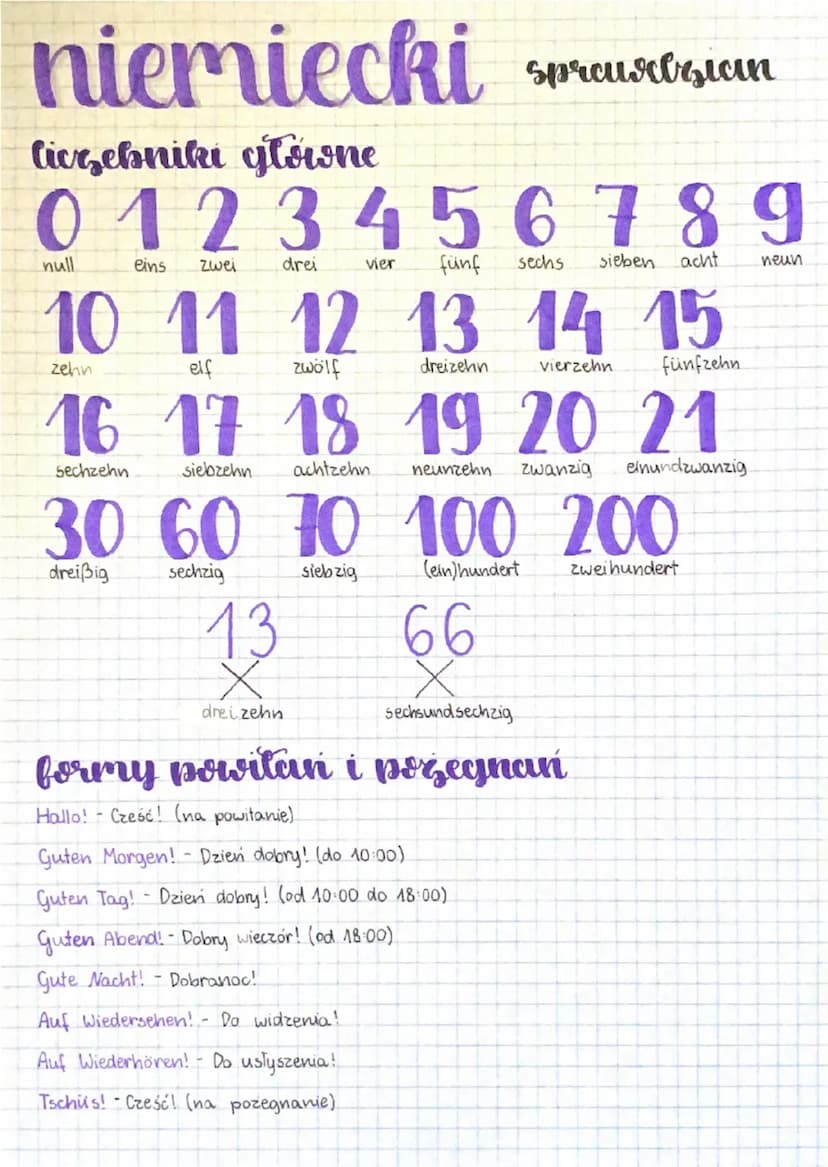 niemiecki sprawdzian
liczebniki główne
0 1 2 3 4 5 6 7 8 9
null eins zwei drei vier fünf sechs sieben acht neun
10 11 12 13 14 15
zehn elf zwölf dreizehn vierzehn fünfzehn
16 17 18 19 20 21
sechzehn siebzehn achtzehn neunzehn zwanzig einundzwanzig
30 60 70 100 200
dreißig sechzig siebzig (ein)hundert zweihundert
13 66
dreizehn sechsundsechzig
formy powitań i pożegnań
Hallo! - Cześć! (na powitanie)
Guten Morgen! - Dzień dobry! (do 10:00)
Guten Tag! - Dzień dobry! (od 10:00 do 18:00)
Guten Abend! - Dobry wieczór! (od 18:00)
Gute Nacht! - Dobranoc!
Auf Wiedersehen! - Do widzenia!
Auf Wiederhören! - Do usłyszenia!
Tschüs! - Cześć! (na pożegnanie)